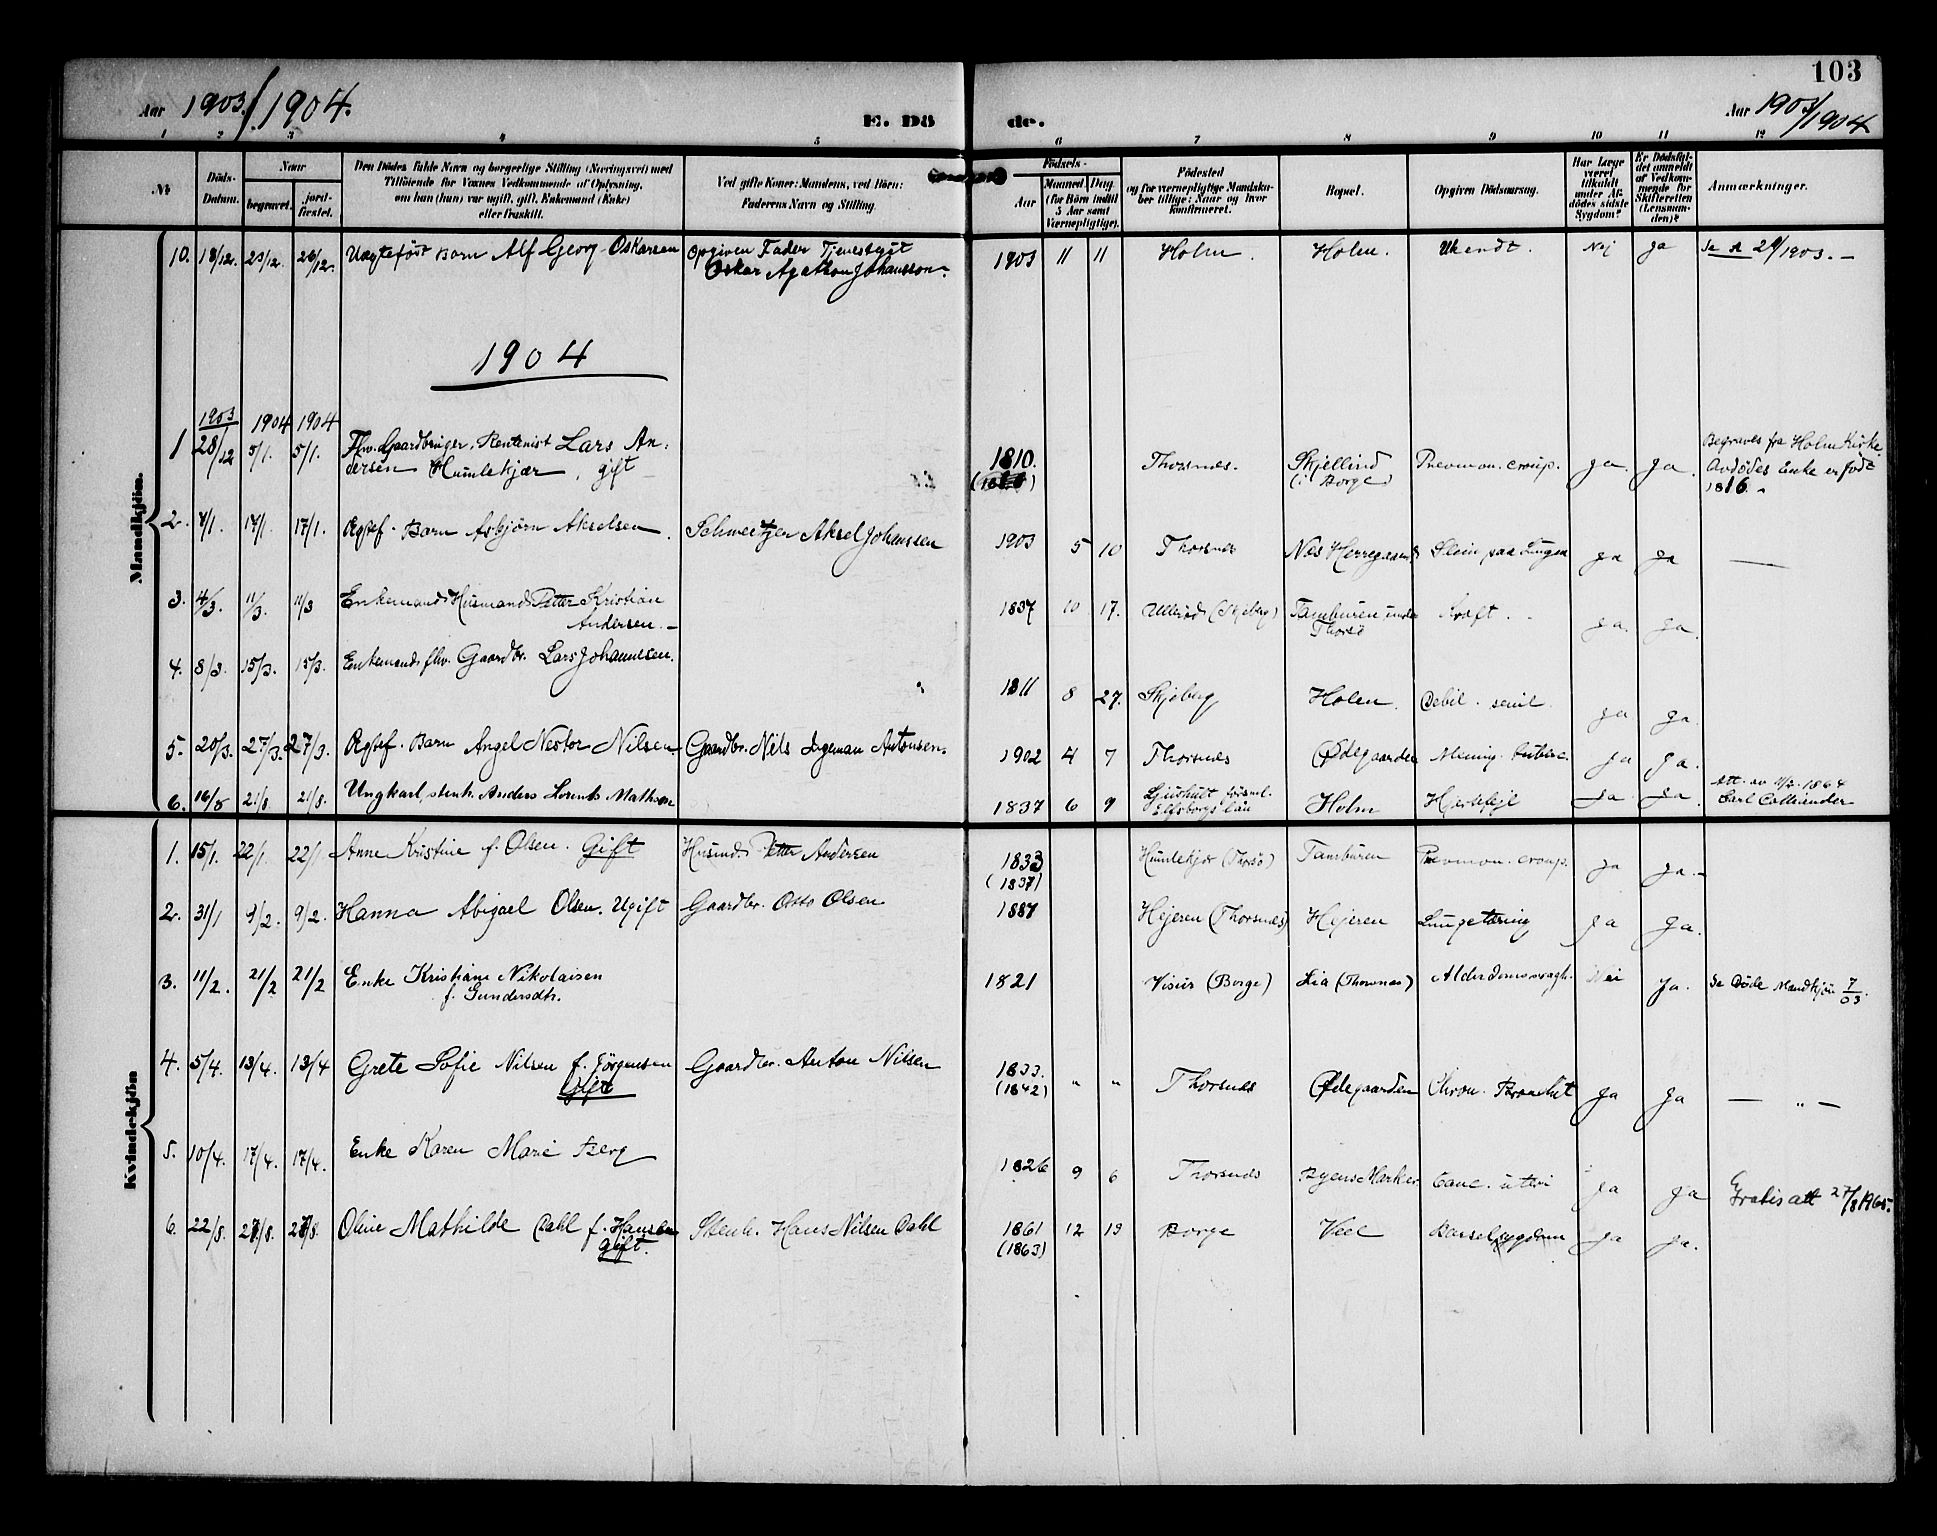 103
Aar 1903/1904.
E. Dö de.
Aar 1903/1904
1 2 3 4 5 6 7 8 9 10 11 12
№
Döds-Datum.
Naar
begravet.
jord-fæstet.
Den Dödes fulde Navn og borgerlige Stilling (Næringsvei) med
Tilföiende for Voxnes Vedkommende af Oplysning,
om han (hun) var ugift, gift, Enkemand (Enke)
eller fraskilt.
Ved gifte Koner: Mandens, ved Börn:
Faderens Navn og Stilling.
Födsels-
Aar
Maaned Dag
(for Börn indtil
5 Aar samt
Værnepligtige).
Födested
og for værnepligtige Mandskaber tillige: Naar og hvor
konfirmeret.
Bopæl.
Opgiven Dödsaarsag.
Har Læge
været
tilkaldt
under Af-
dödes sidste
Sygdom?
Er Dödsfal-
det anmeldt
af Vedkom-
mende for
Skifteretten
(Lensman-
den)?
Anmærkninger.
Mandkjön.
10. 18/12. 23/12. 26/12. Uægtefödt Barn Alf Georg Oskarsen Opgiven Fader Tjenestegut
Oskar Agathon Johansson. 1903 11 11 Holm. Holm. Ukendt. Nej Ja Se A 29/1903. —
1904
1903 1904 1904
1 28/12 5/1. 5/1. Fhv. Gaardbruger, Rentenist Lars An-
dersen Humlekjær, gift 1810. Thorsnes. Skjellind
(i Borge) Pneumon. croup. Ja. Ja. Begraves fra Holm Kirke.
Avdödes Enke er født
1816.
2. 7/1. 17/1. 17/1. Ægtef. Barn Asbjørn Akselsen. Schweitzer Aksel Johanssen 1903 5 10 Thorsnes Nes Herregaard Slem paa Lungen Ja Ja —
3. 4/3. 11/3. 11/3 Enkemand Husmand Petter Kristian
Andersen. — 1837 10 17. Ullerød (Skjeberg) Tamburen under
Thorsö Kræft. Ja. Ja.
4. 8/3. 15/3. 15/3. Enkemand, fhv. Gaardbr. Lars Johannesen. 1811 8 27. Skjeberg Holm. Debil. senil. Ja Ja.
5. 20/3. 27/3. 27/3. Ægtef. Barn Angel Nestor Nilsen. Gaardbr. Nils Ingeman Antonsen. 1902 4 7 Thorsnes Ødegaarden Mening. tuberc. Ja Ja.
6. 16/8 21/8 21/8. Ungkarl, stenh. Anders Lorents Mathson 1837 6 9 Ljushult församl.
Elfsborgs län Holm Hjertefejl Ja Ja. Att. av 11/2. 1864
Carl Colliander
Kvindekjön
1. 15/1. 22/1. 22/1 Anne Kristine f. Olsen. Gift Husmd. Petter Andersen 1833
(1837) Humlekjær (Thorsö) Tamburen Pneumon. croup. Ja Ja. —
2. 31/1 9/2. 9/2. Hanna Abigael Olsen. Ugift Gaardbr. Otto Olsen 1887 Hejeren (Thorsnes) Hejeren Lungetæring Ja Ja.
3. 11/2. 21/2 21/2 Enke Kristiane Nikolaisen
f. Gundersdtr. 1821 Visur (Borge) Lia (Thorsnes) Alderdomssvagh. Nei Ja. Se Døde Mandkjön 7/03.
4. 5/4. 13/4. 13/4 Grete Sofie Nilsen f. Jörgensen
Gift Gaardbr. Anton Nilsen 1833.
(1842) " " Thorsnes Ødegaarden Chron. Bronchit Ja Ja — " —
5. 10/4. 17/4. 17/4. Enke Karen Marie Berg 1826 9 6 Thorsnes Byens Marker Canc. uteri Ja Ja Gratis att 27/8 1965.
6. 22/8. 28/8. 28/8. Oline Mathilde Dahl f. Hansen
Gift. Stenh. Hans Nilsen Dahl 1861
(1863) 12 19 Borge Veel Barselsygdom Ja Ja.